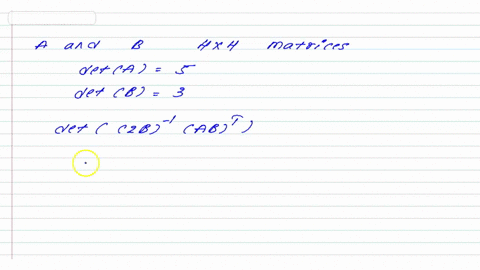 A and B 4x4 matrices
det(A) = 5
det(B) = 3
det( (2B)^-1 (AB)^T )